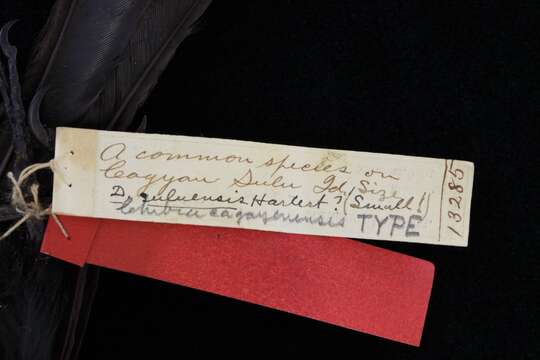 A common species on
Cagyan Sulu Id. (Size
D. suluensis Hartert? (Small!)
Chibia cagayanensis TYPE
13285